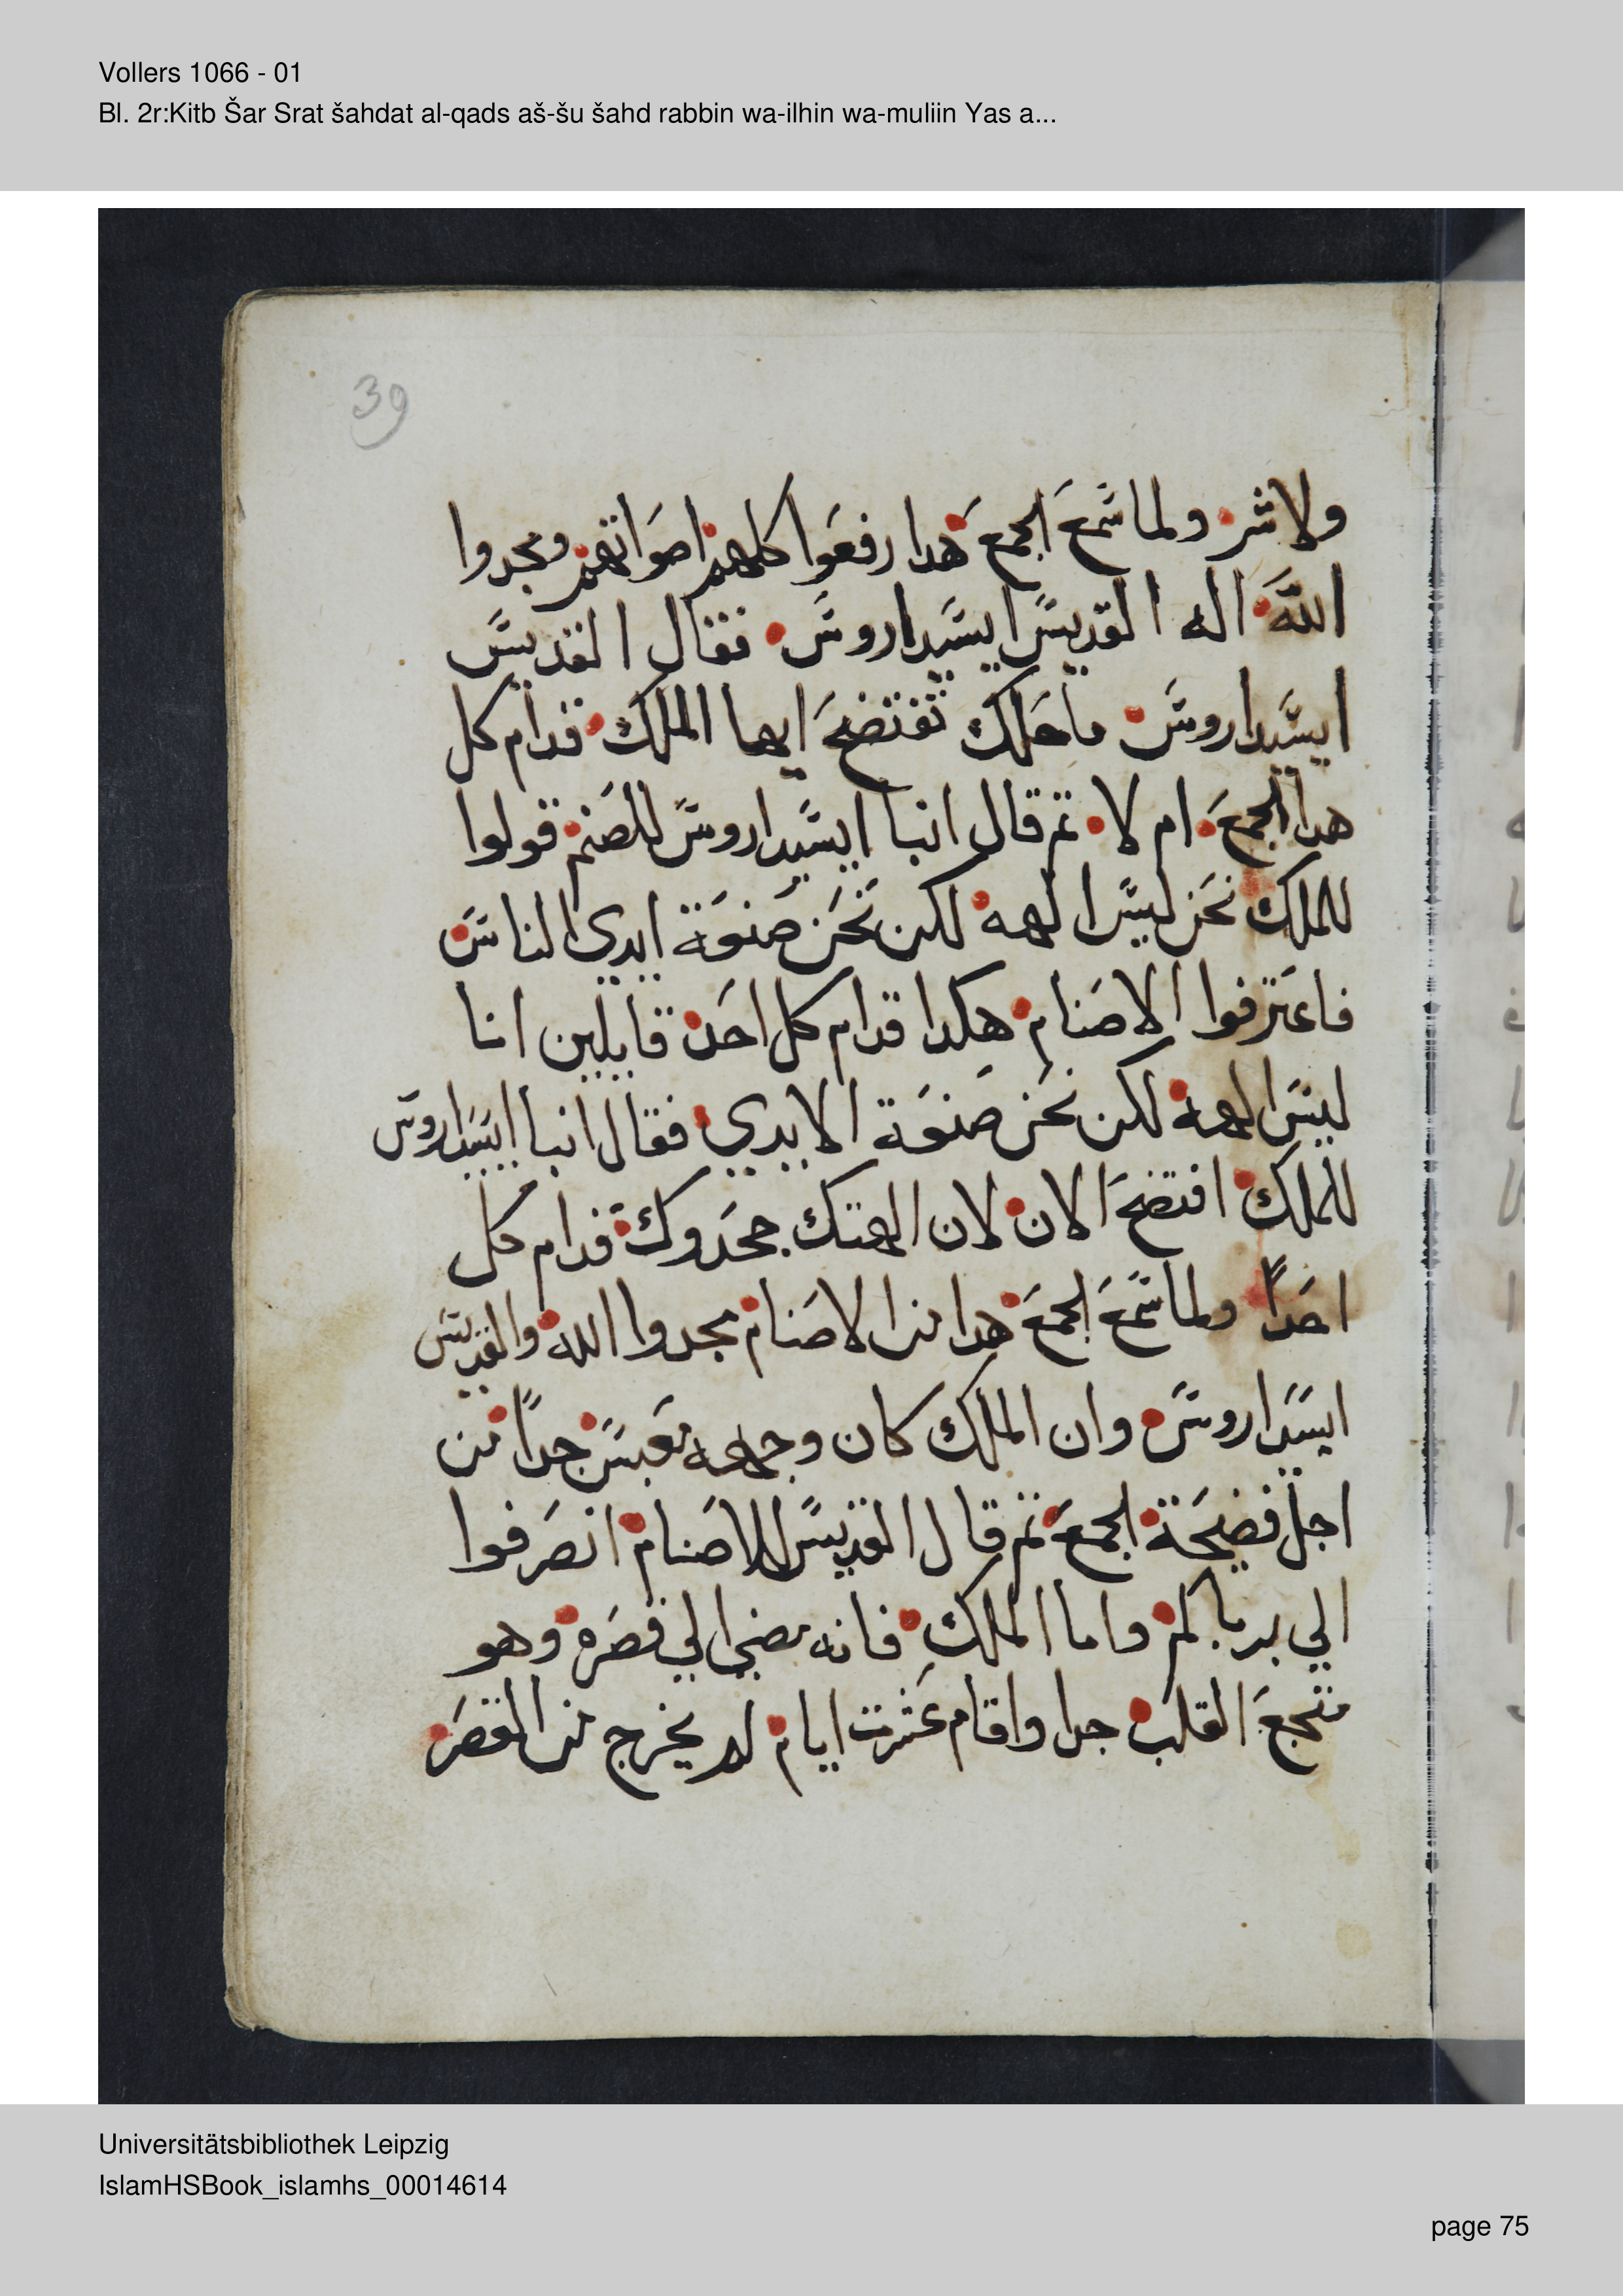 Vollers 1066 - 01
Bl. 2r:Kitb Šar Srat šahdat al-qads aš-šu šahd rabbin wa-ilhin wa-muliin Yas a...
39
ولاشر ولما سمع الجمع هدا رفعوا كلهم اصواتهم ومجدوا
الله اله القديس ايسيداروس فقال القديس
ايسيداروس ماحلك تفتضح ايها الملك قدام كل
هدا الجمع ام لا تم قال انبا ايسيداروس للصنم قولوا
للملك نحن ليس الهه لكن نحن صنوعة ايدي الناس
فاعترفوا الاصنام هكدا قدام كل احد قايلين انا
ليس الهه لكن نحن صنوعة الايدي فقال انبا ايسيداروس
للملك افتضح الان لان الهتك جحدوك قدام كل
احداً ولما سمع الجمع هدا من الاصنام مجدوا الله والقديس
ايسيداروس وان الملك كان وجهه تعبس جداً من
اجل فضيحة الجمع تم قال القديس للاصنام انصرفوا
الي برباكم واما الملك فانه مضي الي قصره وهو
متجع القلب جدا واقام عشرت ايام لم يخرج من القصر
Universitätsbibliothek Leipzig
IslamHSBook_islamhs_00014614
page 75